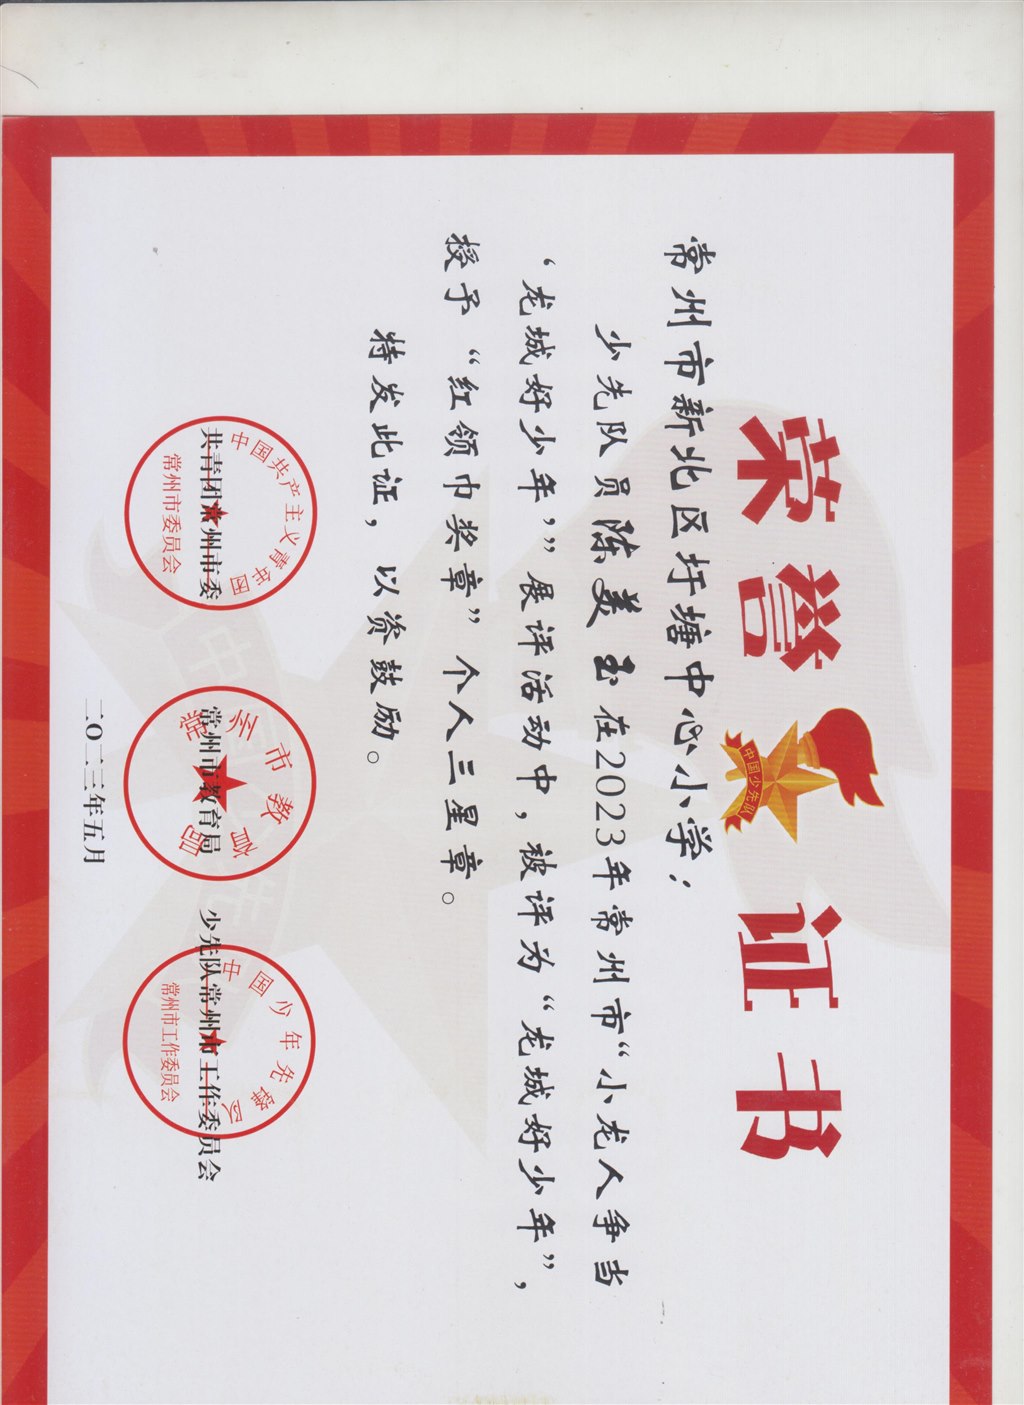 荣誉证书
中国少先队
常州市新北区圩塘中心小学：
少先队员陈美玉在2023年常州市“小龙人争当
‘龙城好少年’”展评活动中，被评为“龙城好少年”，
授予“红领巾奖章”个人三星章。
特发此证，以资鼓励。
共青团常州市委
常州市教育局
少先队常州市工作委员会
中国共产主义青年团
常州市委员会
常州市教育局
中国少年先锋队
常州市工作委员会
二〇二三年五月